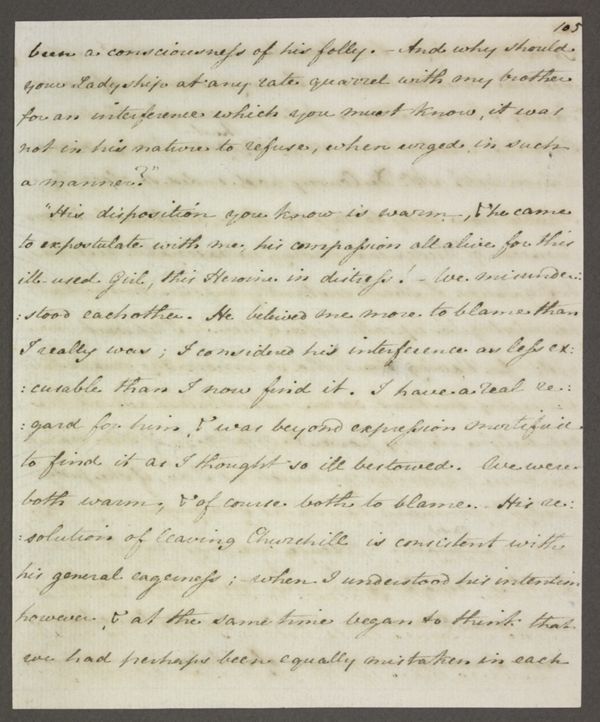 105
been a consciousness of his folly. - And why should
your Ladyship at any rate quarrel with my brother
for an interference which you must know, it was
not in his nature to refuse, when urged in such
a manner?"
"His disposition you know is warm, & he came
to expostulate with me, his compassion all alive for this
ill-used Girl, this Heroine in distress! - We misunder:
:stood eachother. He beleived me more to blame than
I really was; I considered his interference as less ex:
:cusable than I now find it. I have a real re:
:gard for him, & was beyond expression mortified
to find it as I thought so ill bestowed. We were
both warm, & of course both to blame. His re:
:solution of leaving Churchill is consistent with
his general eagerness; when I understood his intention
however, & at the same time began to think that
we had perhaps been equally mistaken in each